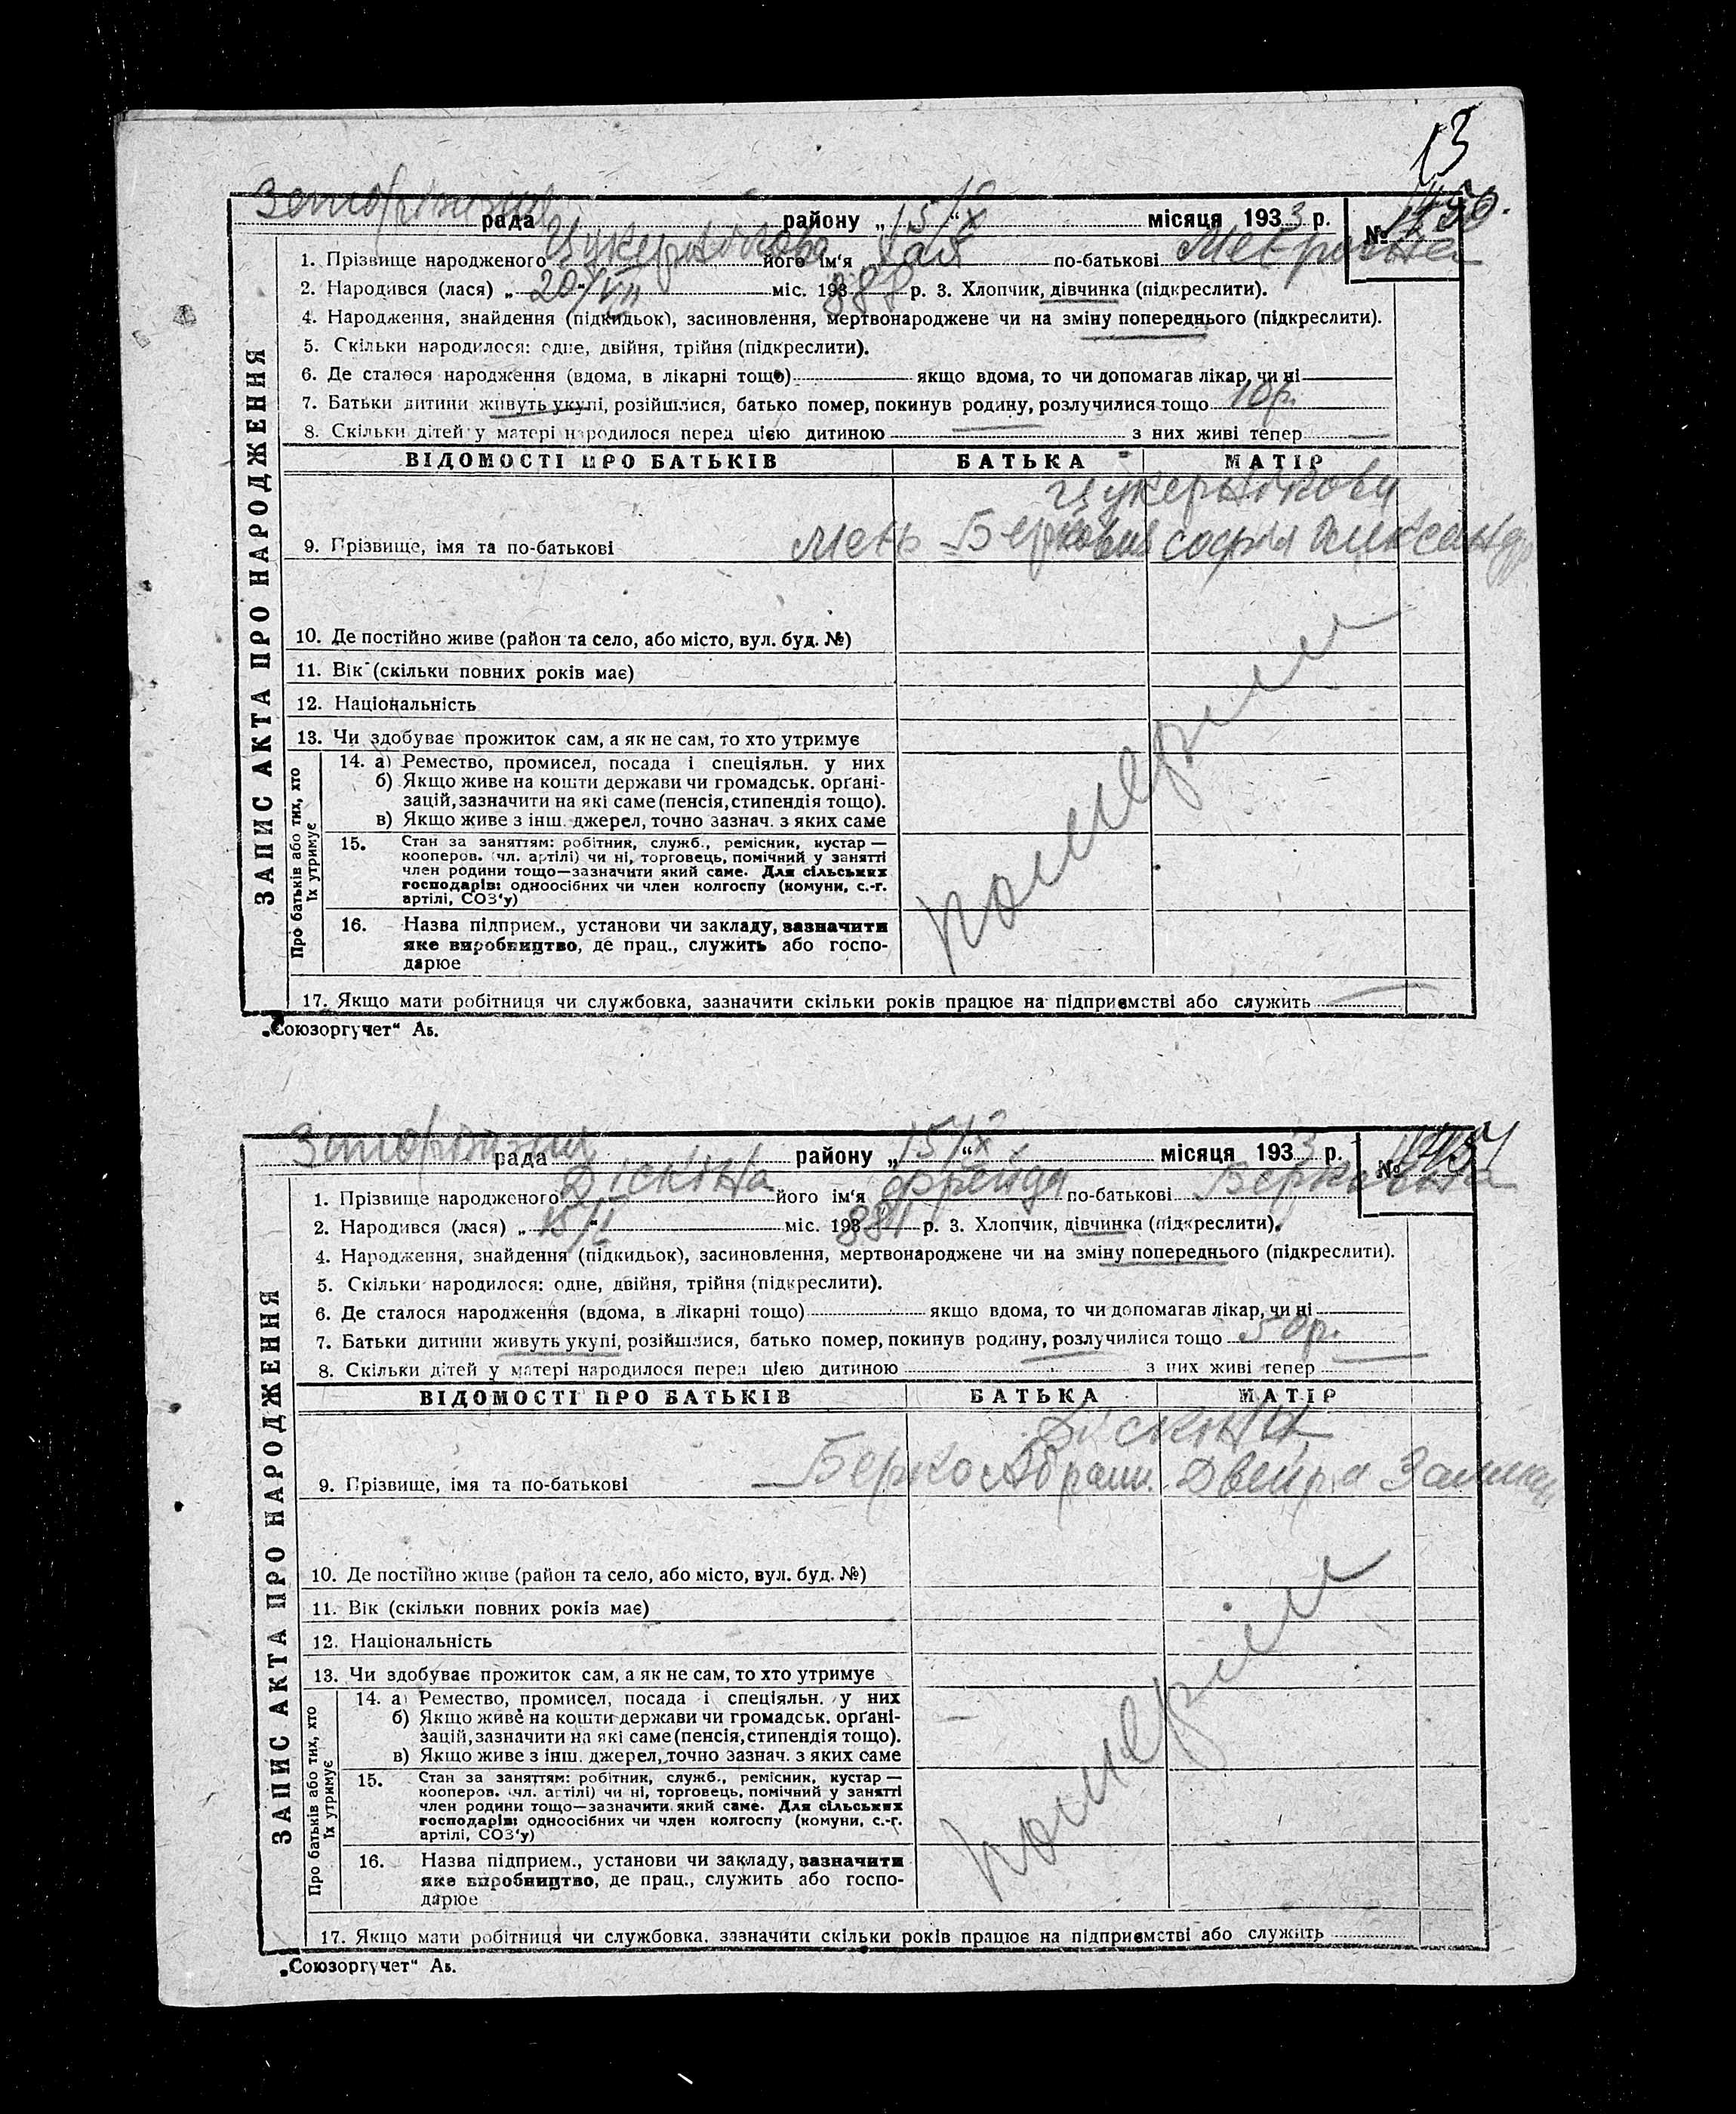 13
рада району „15/X“ місяця 1933 р. №
1. Прізвище народженого його ім'я Хая по-батькові
2. Народився (лася) „20/VII“ міс. 193 888 р. 3. Хлопчик, дівчинка (підкреслити).
4. Народження, знайдення (підкидьок), засиновлення, мертвонароджене чи на зміну попереднього (підкреслити).
5. Скільки народилося: одне, двійня, трійня (підкреслити).
6. Де сталося народження (вдома, в лікарні тощо) якщо вдома, то чи допомагав лікар, чи ні
7. Батьки дитини живуть укупі, розійшлися, батько помер, покинув родину, розлучилися тощо 10р.
8. Скільки дітей у матері народилося перед цією дитиною з них живі тепер
ВІДОМОСТІ ПРО БАТЬКІВ БАТЬКА МАТІР
Цукерникови
9. Прізвище, імя та по-батькові Мень Беркович
10. Де постійно живе (район та село, або місто, вул. буд. №)
11. Вік (скільки повних років має)
12. Національність
13. Чи здобуває прожиток сам, а як не сам, то хто утримує
14. а) Ремество, промисел, посада і спеціяльн. у них
б) Якщо живе на кошти держави чи громадськ. орґані-
зацій, зазначити на які саме (пенсія, стипендія тощо).
в) Якщо живе з інш. джерел, точно зазнач. з яких саме
15. Стан за заняттям: робітник, служб., ремісник, кустар —
кооперов. (чл. артілі) чи ні, торговець, помічний у занятті
член родини тощо—зазначити який саме. Для сільських
господарів: одноосібних чи член колгоспу (комуни, с.-г.
артілі, СОЗ'у)
16. Назва підприєм., установи чи закладу, зазначити
яке виробництво, де прац., служить або госпо-
дарює
17. Якщо мати робітниця чи службовка, зазначити скільки років працює на підприємстві або служить
ЗАПИС АКТА ПРО НАРОДЖЕННЯ
Про батьків або тих, хто
їх утримує
померли
„Союзоргучет“ АБ.
рада району „15/X“ місяця 1933 р. №
1. Прізвище народженого Діскіна його ім'я Фрейда по-батькові Берковна
2. Народився (лася) „15/I“ міс. 193 881 р. 3. Хлопчик, дівчинка (підкреслити).
4. Народження, знайдення (підкидьок), засиновлення, мертвонароджене чи на зміну попереднього (підкреслити).
5. Скільки народилося: одне, двійня, трійня (підкреслити).
6. Де сталося народження (вдома, в лікарні тощо) якщо вдома, то чи допомагав лікар, чи ні
7. Батьки дитини живуть укупі, розійшлися, батько помер, покинув родину, розлучилися тощо 50р.
8. Скільки дітей у матері народилося перед цією дитиною з них живі тепер
ВІДОМОСТІ ПРО БАТЬКІВ БАТЬКА МАТІР
Діскіни
9. Прізвище, імя та по-батькові Берко Абрам. Двейра
10. Де постійно живе (район та село, або місто, вул. буд. №)
11. Вік (скільки повних років має)
12. Національність
13. Чи здобуває прожиток сам, а як не сам, то хто утримує
14. а) Ремество, промисел, посада і спеціяльн. у них
б) Якщо живе на кошти держави чи громадськ. орґані-
зацій, зазначити на які саме (пенсія, стипендія тощо).
в) Якщо живе з інш. джерел, точно зазнач. з яких саме
15. Стан за заняттям: робітник, служб., ремісник, кустар —
кооперов. (чл. артілі) чи ні, торговець, помічний у занятті
член родини тощо—зазначити який саме. Для сільських
господарів: одноосібних чи член колгоспу (комуни, с.-г.
артілі, СОЗ'у)
16. Назва підприєм., установи чи закладу, зазначити
яке виробництво, де прац., служить або госпо-
дарює
17. Якщо мати робітниця чи службовка, зазначити скільки років працює на підприємстві або служить
ЗАПИС АКТА ПРО НАРОДЖЕННЯ
Про батьків або тих, хто
їх утримує
померли
„Союзоргучет“ АБ.